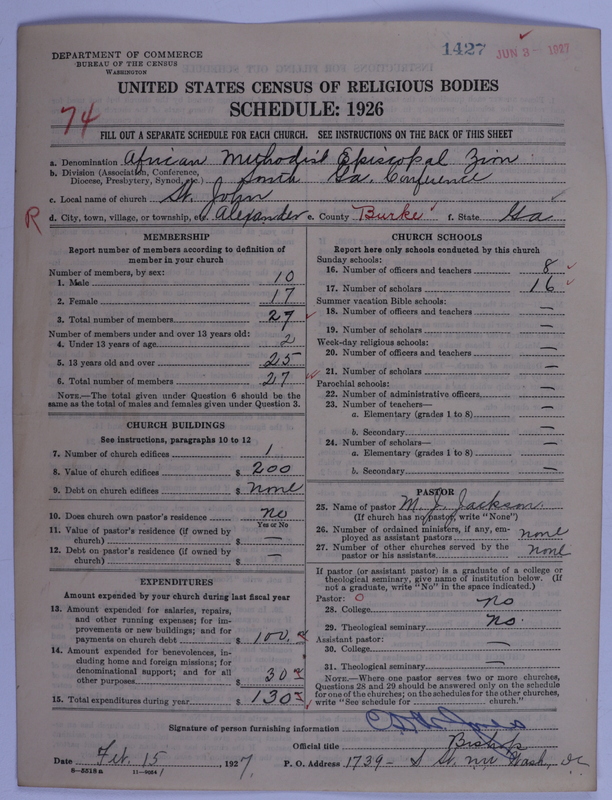 DEPARTMENT OF COMMERCE
BUREAU OF THE CENSUS
WASHINGTON
1427 JUN 3 - 1927
UNITED STATES CENSUS OF RELIGIOUS BODIES
SCHEDULE: 1926
74
FILL OUT A SEPARATE SCHEDULE FOR EACH CHURCH. SEE INSTRUCTIONS ON THE BACK OF THIS SHEET
a. Denomination African Methodist Episcopal Zion
b. Division (Association, Conference, Diocese, Presbytery, Synod, etc.) South Ga. Conference
c. Local name of church St. John
R d. City, town, village, or township, etc. Alexander e. County Burke f. State Ga
MEMBERSHIP
Report number of members according to definition of
member in your church
Number of members, by sex:
1. Male 10
2. Female 17
3. Total number of members 27
Number of members under and over 13 years old:
4. Under 13 years of age 2
5. 13 years old and over 25
6. Total number of members 27
NOTE.—The total given under Question 6 should be
same as the total of males and females given under Question 3.
CHURCH BUILDINGS
See instructions, paragraphs 10 to 12
7. Number of church edifices 1
8. Value of church edifices $ 200
9. Debt on church edifices $ none
10. Does church own pastor's residence no
Yes or No
11. Value of pastor's residence (if owned by
church) $ —
12. Debt on pastor's residence (if owned by
church) $ —
EXPENDITURES
Amount expended by your church during last fiscal year
13. Amount expended for salaries, repairs,
and other running expenses; for im-
provements or new buildings; and for
payments on church debt $ 100.
14. Amount expended for benevolences, in-
cluding home and foreign missions; for
denominational support; and for all
other purposes $ 30
15. Total expenditures during year $ 130
CHURCH SCHOOLS
Report here only schools conducted by this church
Sunday schools:
16. Number of officers and teachers 8
17. Number of scholars 16
Summer vacation Bible schools:
18. Number of officers and teachers —
19. Number of scholars —
Week-day religious schools:
20. Number of officers and teachers —
21. Number of scholars —
Parochial schools:
22. Number of administrative officers —
23. Number of teachers—
a. Elementary (grades 1 to 8) —
b. Secondary —
24. Number of scholars—
a. Elementary (grades 1 to 8) —
b. Secondary —
PASTOR
25. Name of pastor M. J. Jackson
(If church has no pastor, write "None")
26. Number of ordained ministers, if any, em-
ployed as assistant pastors none
27. Number of other churches served by the
pastor or his assistants none
If pastor (or assistant pastor) is a graduate of a college or
theological seminary, give name of institution below. (If
not a graduate, write "No" in the space indicated.)
Pastor: 0
28. College no
29. Theological seminary no.
Assistant pastor:
30. College —
31. Theological seminary —
NOTE.—Where one pastor serves two or more churches,
Questions 28 and 29 should be answered only on the schedule
for one of the churches; on the schedules for the other churches,
write "See schedule for church."
Signature of person furnishing information
Official title Bishop
Date Feb. 15, 1927. P. O. Address 1739 - S St. nw Wash, DC
8—5518a 11—9264